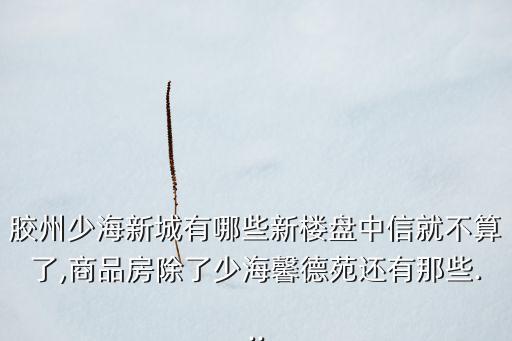 胶州少海新城有哪些新楼盘中信就不算
了,商品房除了少海馨德苑还有那些.
..